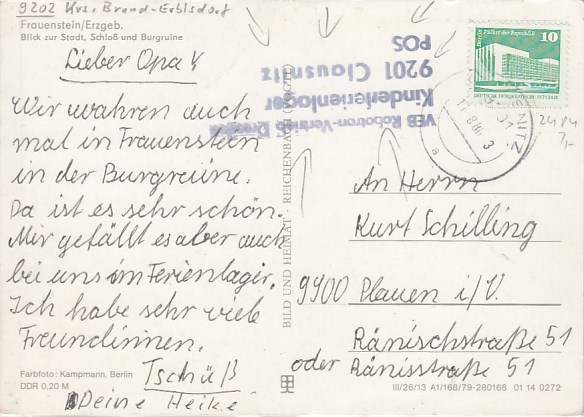 9202 Krs. Brand-Erbisdorf
Frauenstein/Erzgeb.
Blick zur Stadt, Schloß und Burgruine
Lieber Opa!
Wir wahren auch
mal in Frauenstein
in der Burgreüine.
Da ist es sehr schön.
Mir gefällt es aber auch
bei uns im Ferienlager.
Ich habe sehr viele
Freundinnen.
Tschüß
Deine Heike
Farbfoto: Kampmann, Berlin
DDR 0,20 M
BILD UND HEIMAT · REICHENBACH (VOGTL)
VEB Robotron-Vertrieb
Kinderferienlager
9201 Clausnitz
POS
Berlin, Palast der Republik
10
DEUTSCHE DEMOKRATISCHE REPUBLIK
NITZ
a
2484
7,-
An Herrn
Kurt Schilling
9900 Plauen i/V.
Ränischstraße 51
oder Ränisstraße 51
III/26/13 A1/168/79-280168 01 14 0272